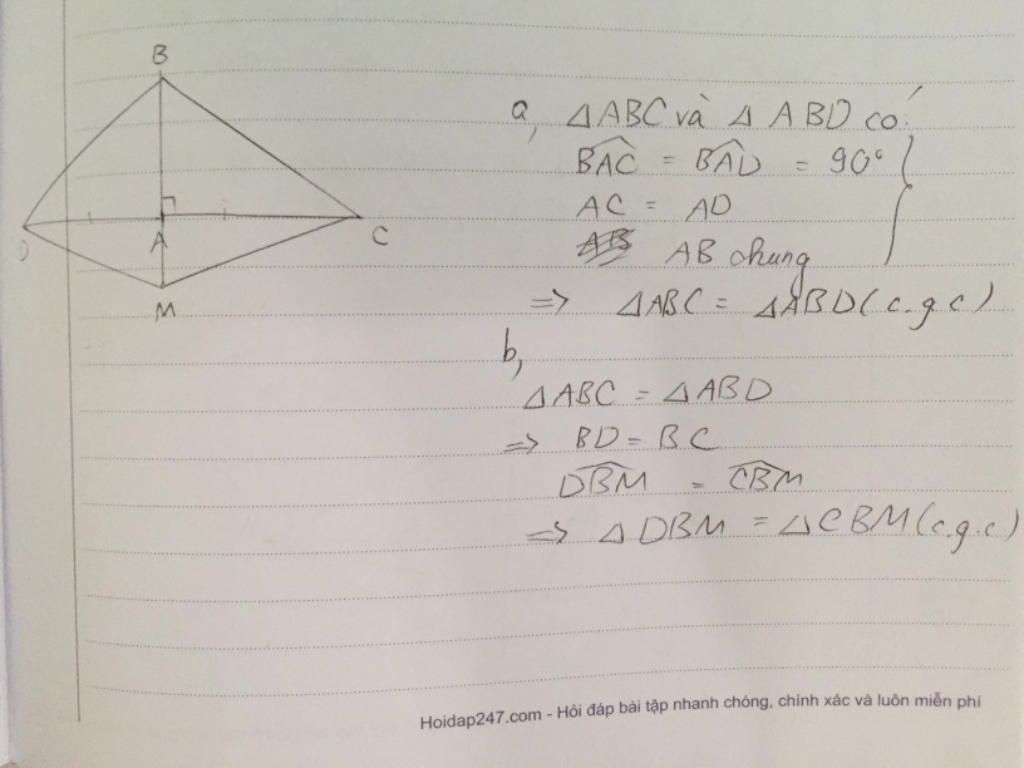 B
D
A
C
M
a, △ABC và △ABD có:
BAC = BAD = 90°
AC = AD
AB chung
=> △ABC = △ABD (c.g.c)
b,
△ABC = △ABD
=> BD = BC
DBM = CBM
=> △DBM = △CBM (c.g.c)
Hoidap247.com - Hỏi đáp bài tập nhanh chóng, chính xác và luôn miễn phí